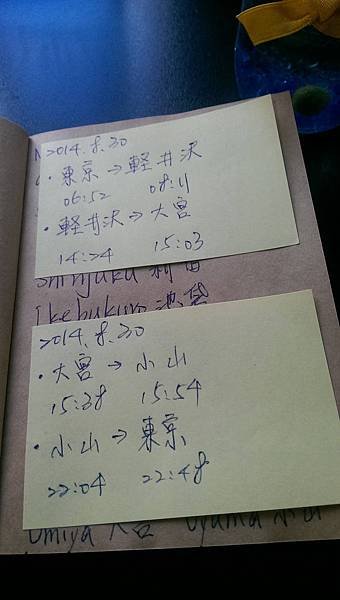 2014.8.30
・東京→軽井沢
06:52 08:11
・軽井沢→大宮
14:24 15:03
Shinjuku 新宿
Ikebukuro 池袋
2014.8.30
・大宮→小山
15:38 15:54
・小山→東京
22:04 22:48
Omiya 大宮 Oyama 小山